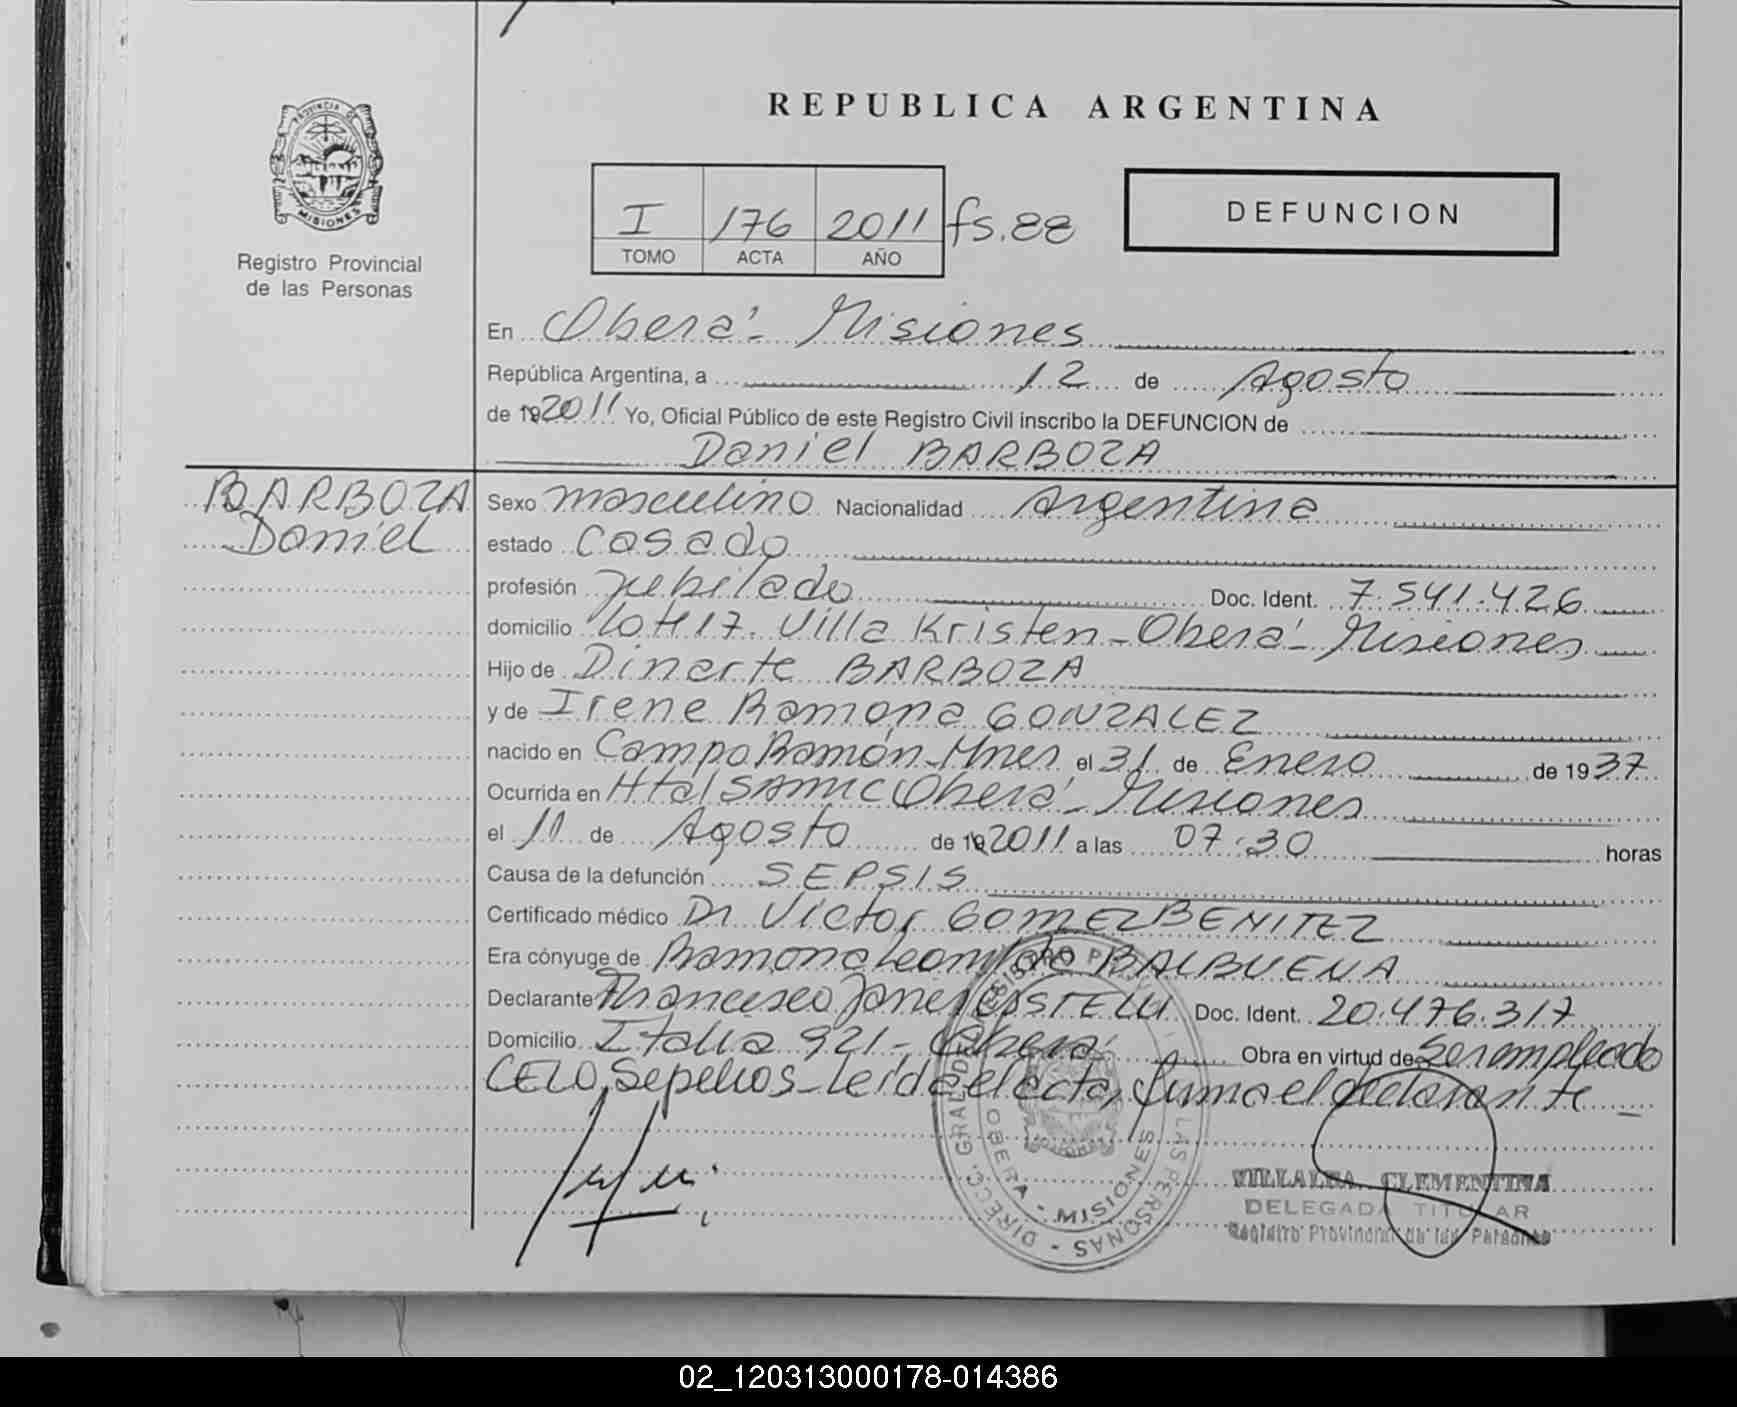 REPUBLICA ARGENTINA
PROVINCIA DE
MISIONES
Registro Provincial
de las Personas
I 176 2011 fs.88
TOMO ACTA AÑO
DEFUNCION
En Oberá - Misiones
República Argentina, a 12 de Agosto
de 19 2011 Yo, Oficial Público de este Registro Civil inscribo la DEFUNCION de
Daniel BARBOZA
BARBOZA
Daniel
Sexo masculino Nacionalidad Argentina
estado Casado
profesión jubilado Doc. Ident. 7.541.426
domicilio lote 17. Villa Kristen - Oberá - Misiones
Hijo de Dinarte BARBOZA
y de Irene Ramona GONZALEZ
nacido en Campo Ramón - Mnes el 31 de Enero de 1937
Ocurrida en Htal SAMIC Oberá - Misiones
el 11 de Agosto de 19 2011 a las 07:30 horas
Causa de la defunción SEPSIS
Certificado médico Dr Victor GOMEZ BENITEZ
Era cónyuge de Ramona BALBUENA
Declarante Francisco Doc. Ident. 20.476.317
Domicilio Italia 921 - Oberá Obra en virtud de Ser empleado
CELO Sepelios - Leída el acta, firma el declarante
DIREC. GRAL. DEL REGISTRO PROVINCIAL DE LAS PERSONAS
OBERA - MISIONES
VILLALBA CLEMENTINA
DELEGADA TITULAR
Registro Provincial de las Personas
02_120313000178-014386